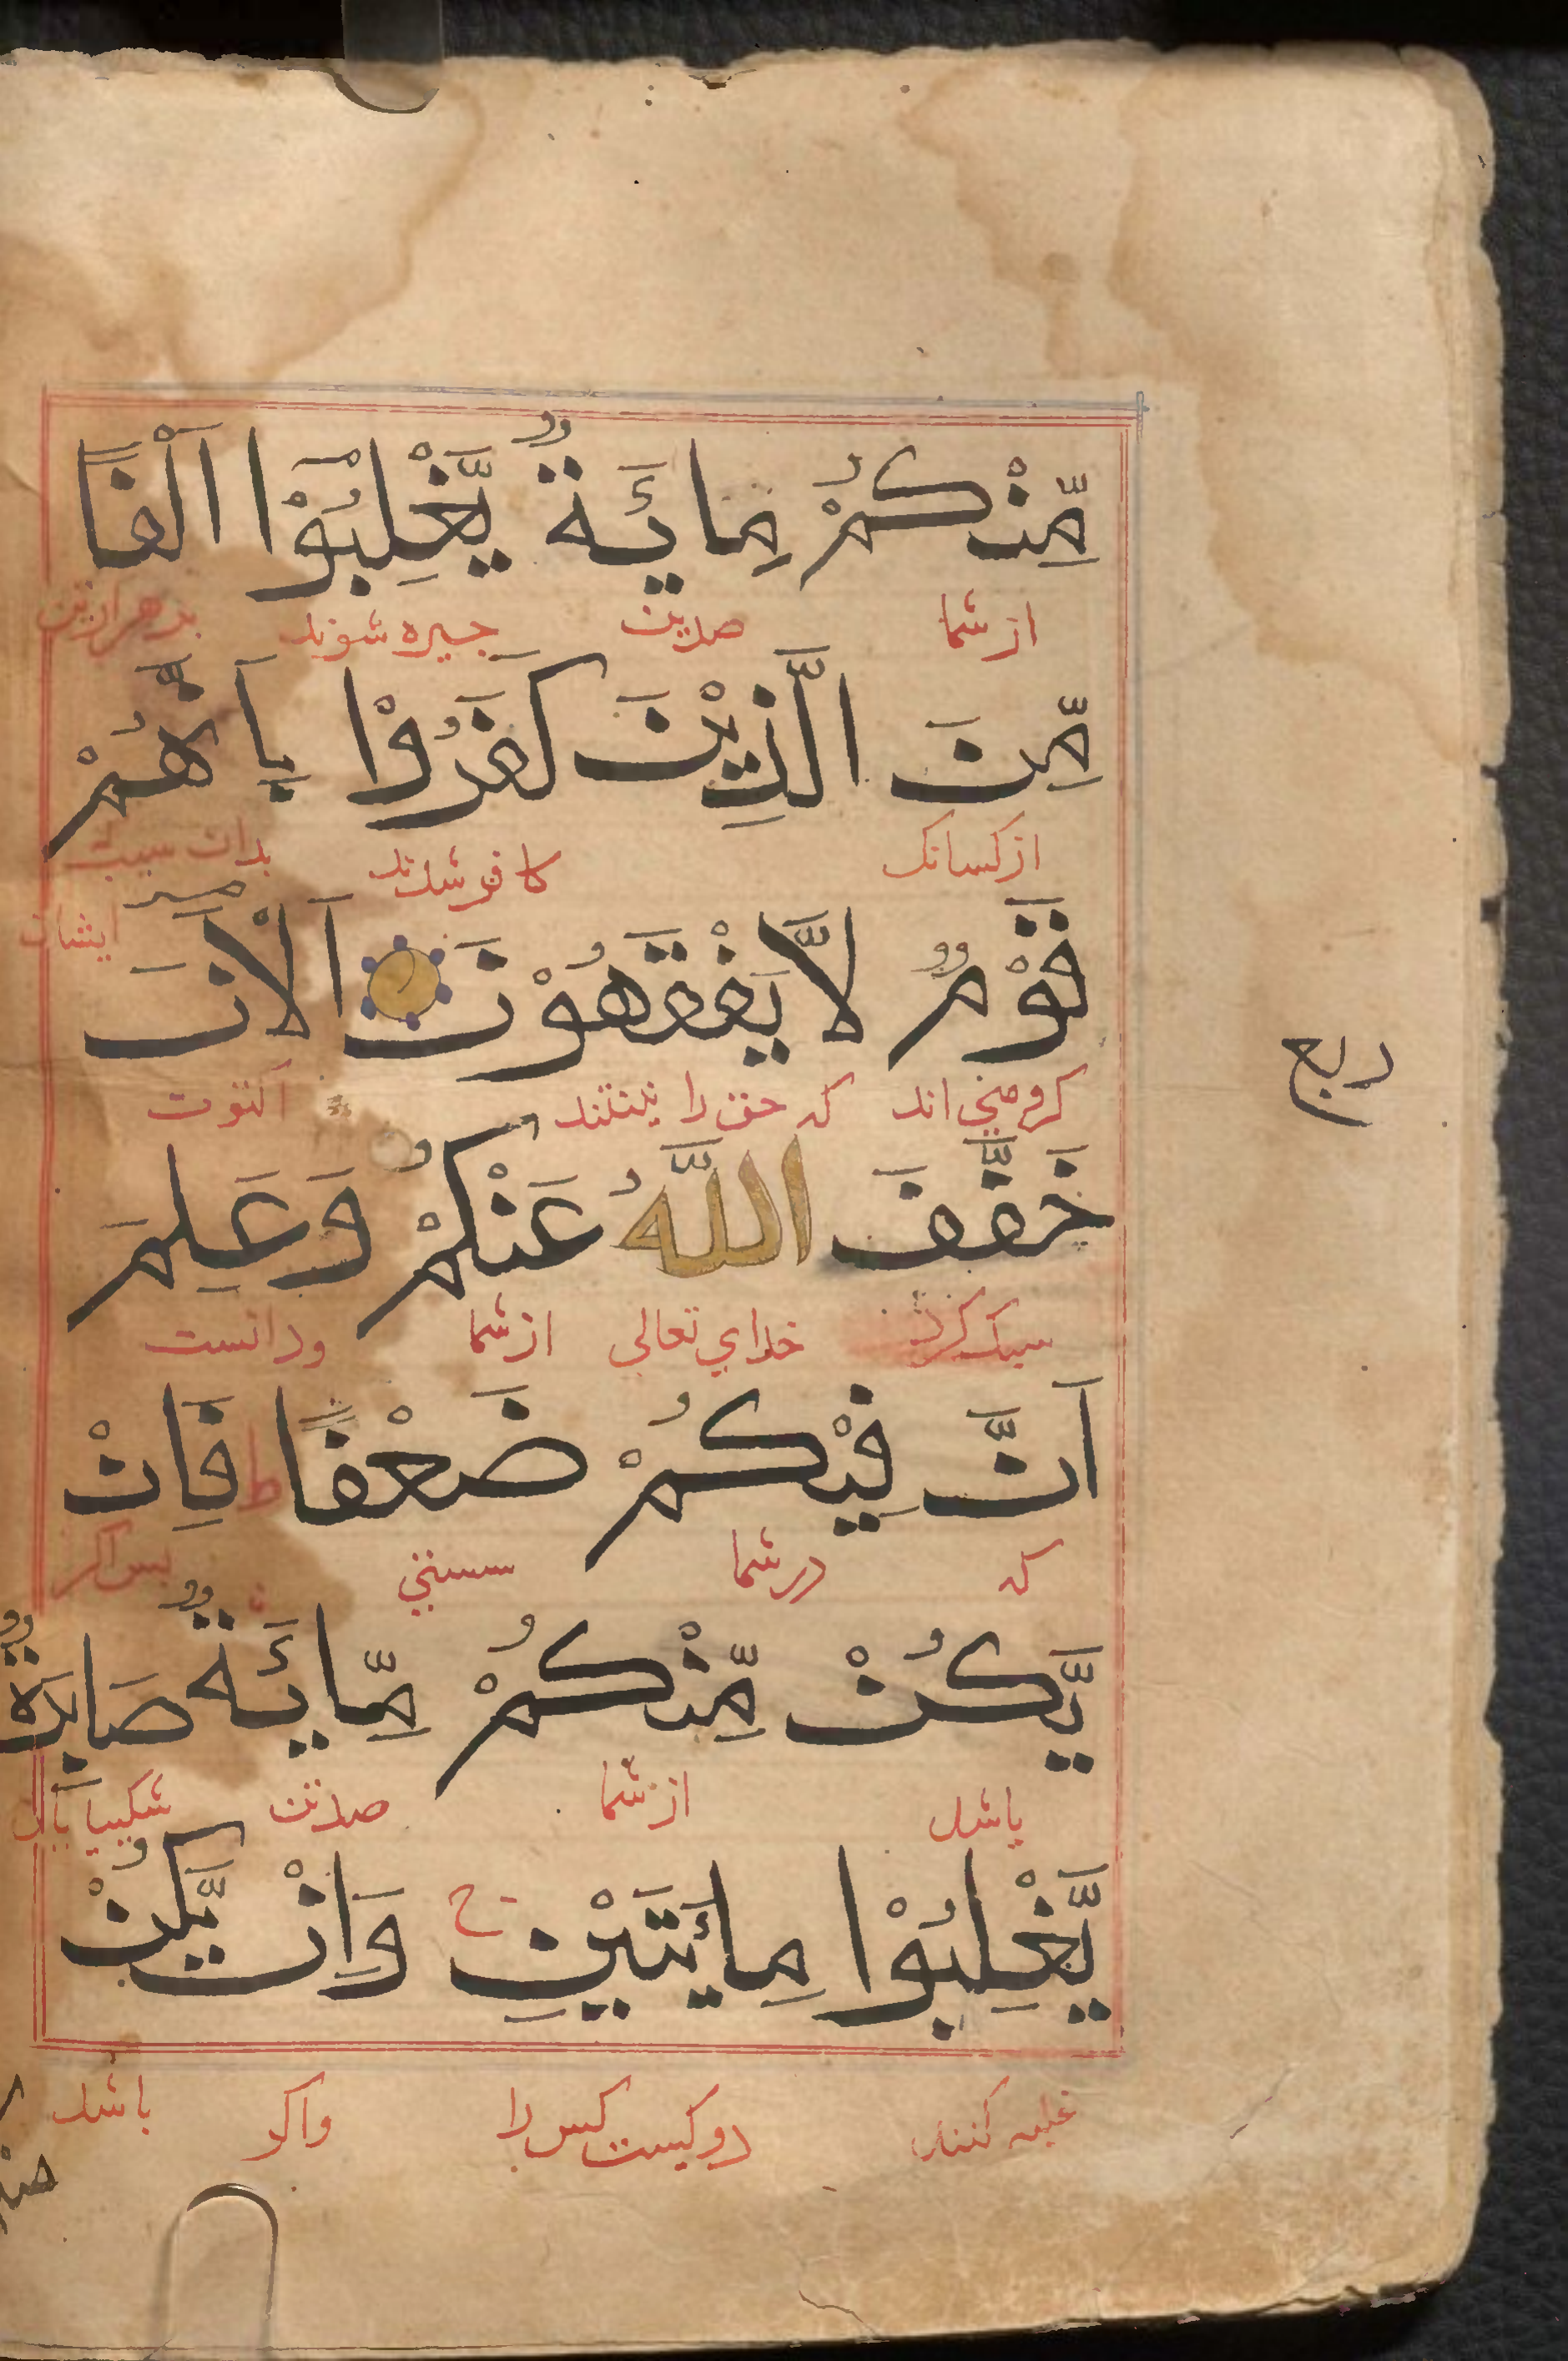 مِّنْكُمْ مِائَةٌ يَّغْلِبُوْٓا اَلْفًا
از شما صد تن چیره شوند بر هزار تن
مِّنَ الَّذِيْنَ كَفَرُوْا بِاَنَّهُمْ
از کسانک کافر شدند بدان سبب
ایشان
قَوْمٌ لَّا يَفْقَهُوْنَ اَلْاٰنَ
ربع
کروهی اند که حق را اکنون
خَفَّفَ اللّٰهُ عَنْكُمْ وَعَلِمَ
سبک کرد خدای تعالی از شما ودانست
اَنَّ فِيْكُمْ ضَعْفًا ط فَاِنْ
که در شما سستی پس اکر
يَّكُنْ مِّنْكُمْ مِّائَةٌ صَابِرَةٌ
باشد از شما صد تن شکیبایان
يَّغْلِبُوْا مِائَتَيْنِ ج وَاِنْ يَّكُنْ
غلبه کنند دویست کس را واکر باشد